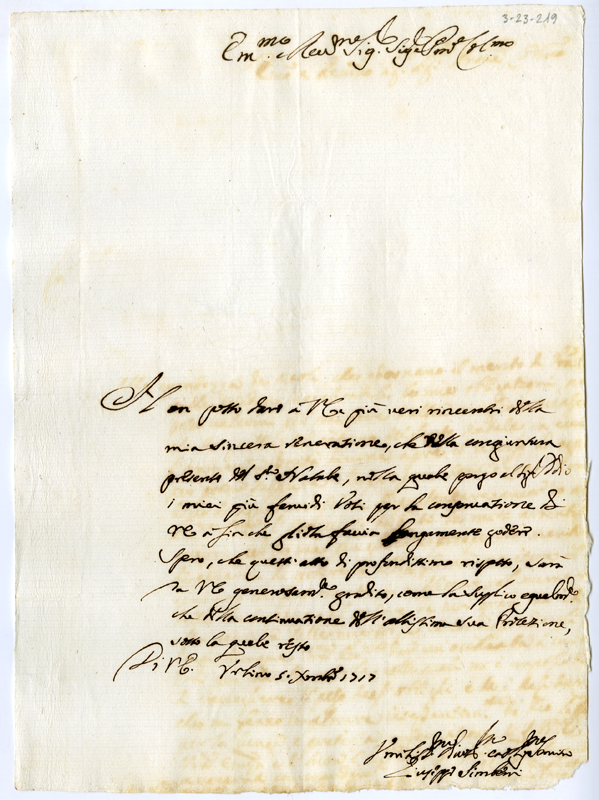 3-23-219
Em.mo e Rev.mo Sig. Sig.
Non posso dare à V.E. più veri rincontri della
mia sincera veneratione, che nella congiuntura
presente del S.to Natale, nella quale porgo all' Iddio
i miei più fervidi Voti per la conservatione di
V.E. à fin che gliela faccia longamente godere.
Spero, che quest'atto di profondissimo rispetto, sarà
da V.E. generosam.te gradito, come la supplico egualm.te
che della continuatione dell'altissima sua Protezione,
sotto la quale resto
Di V.E. Urbino 5. Xmbre 1717
Giuseppe